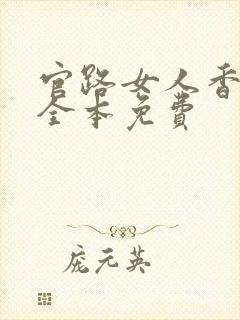 官路女人香
全本免费
庞元英